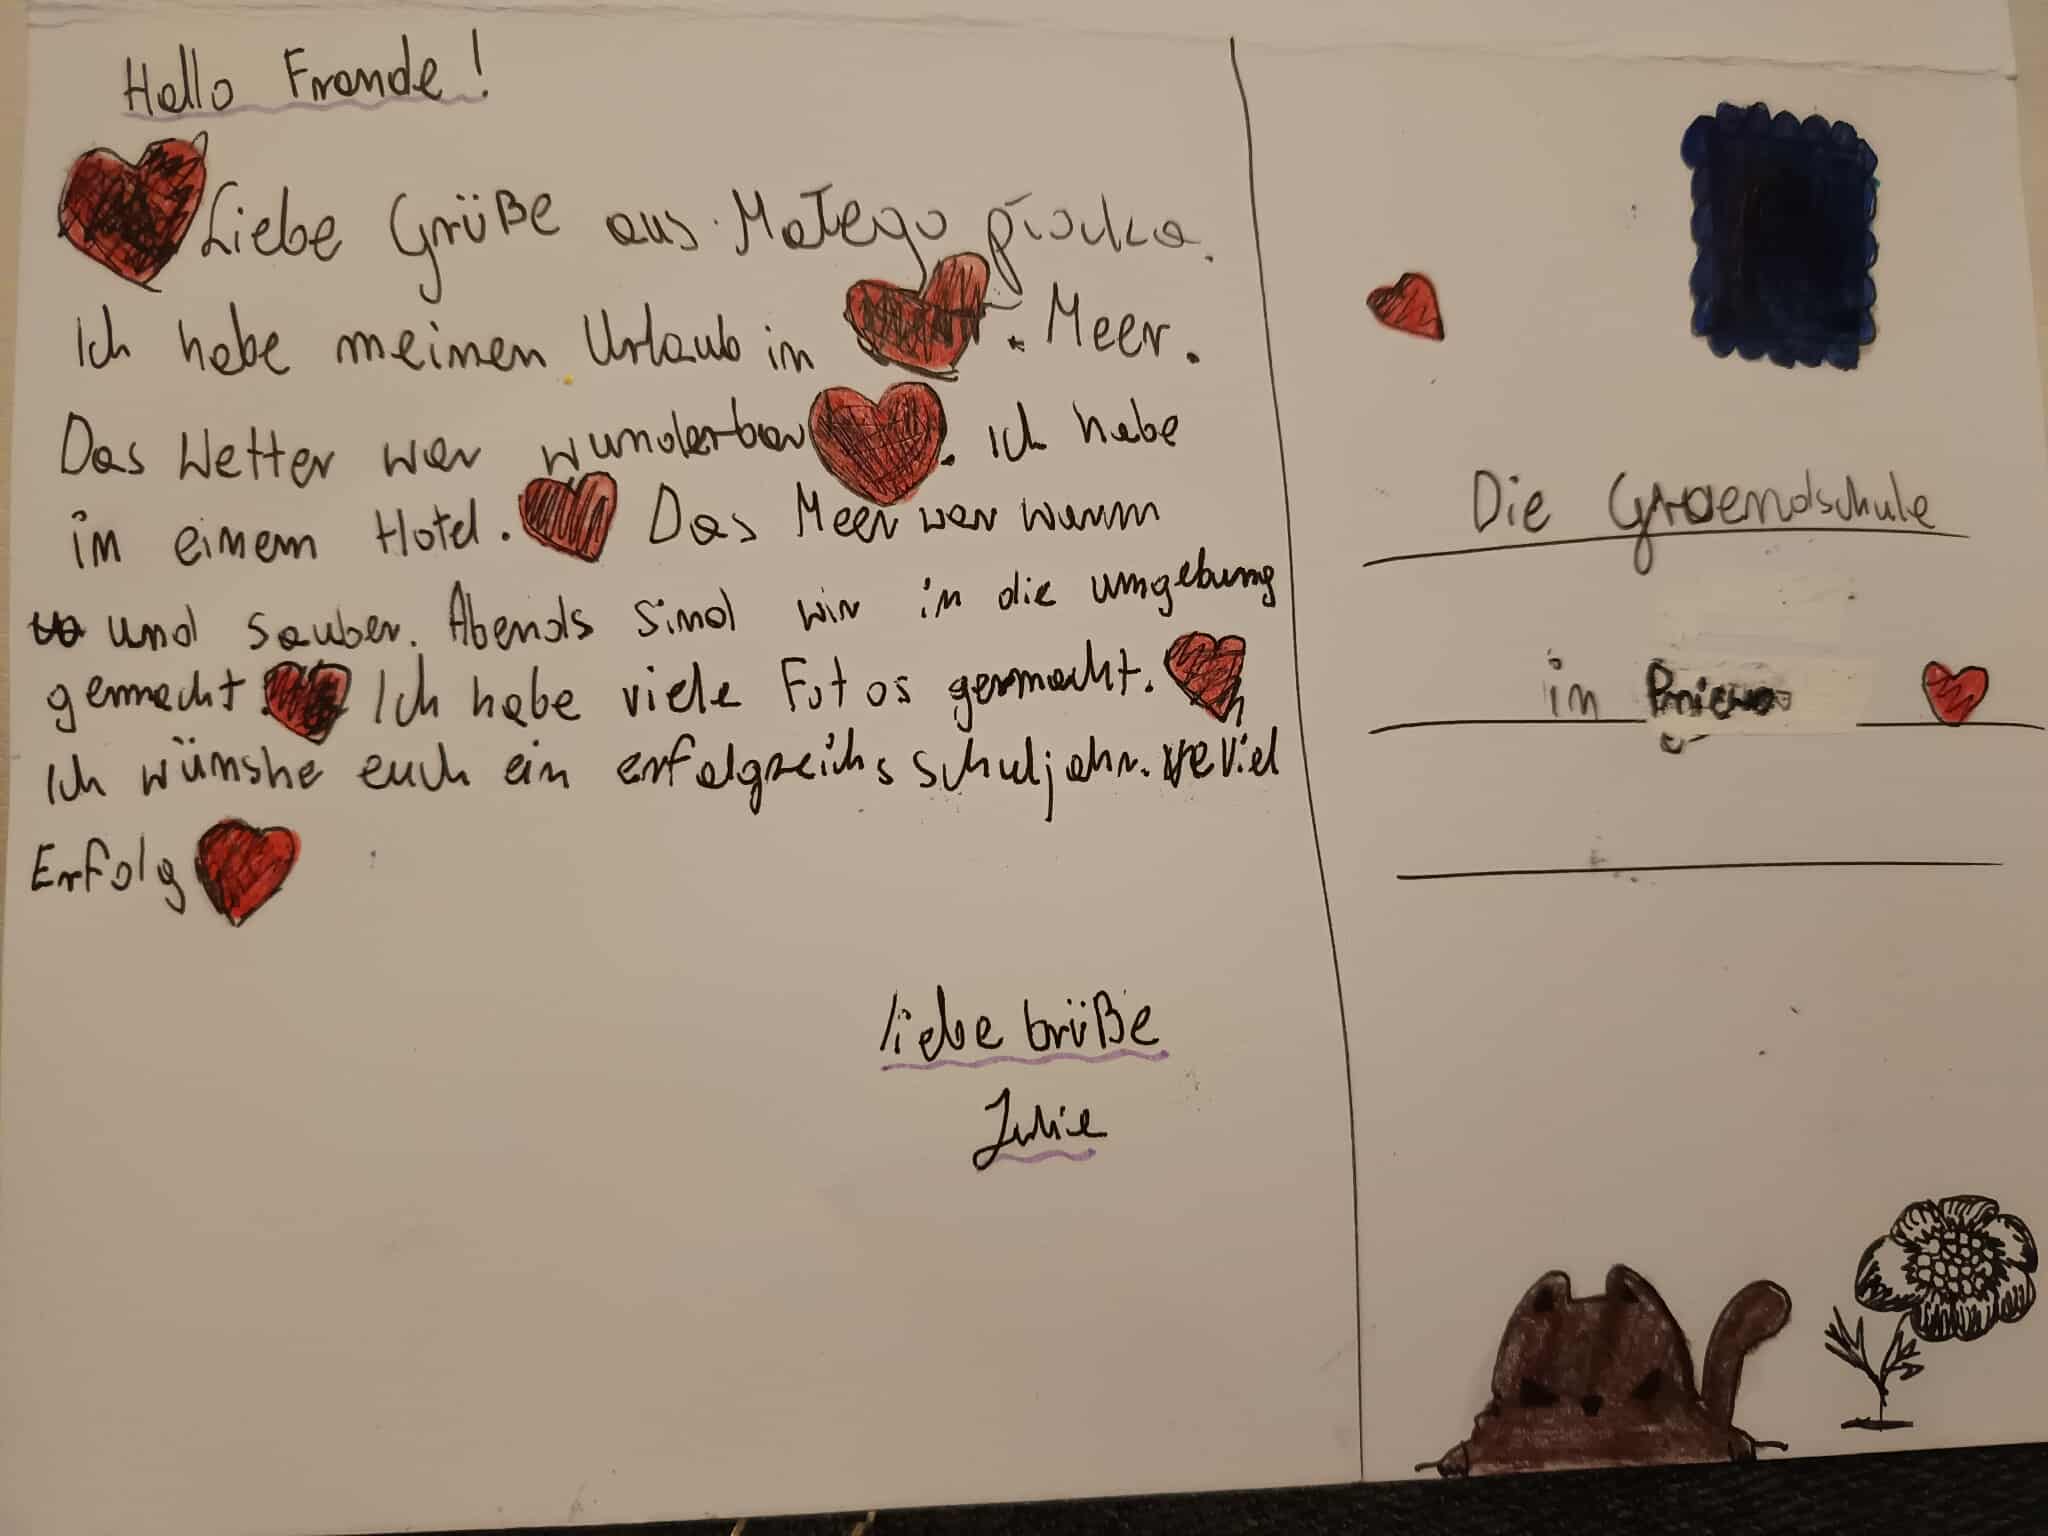 Hallo Frende!
Liebe Grüße aus Małego płocka.
Ich habe meinen Urlaub in . Meer.
Das Wetter war wunderbar. ich habe
in einem Hotel. Das Meer war warm
und sauber. Abends sind wir in die umgebung
gemacht. Ich habe viele Fotos germacht.
Ich wünshe euch ein erfolgreichs schuljahr. viel
Erfolg
liebe Grüße
Julie
Die Groendschule
in